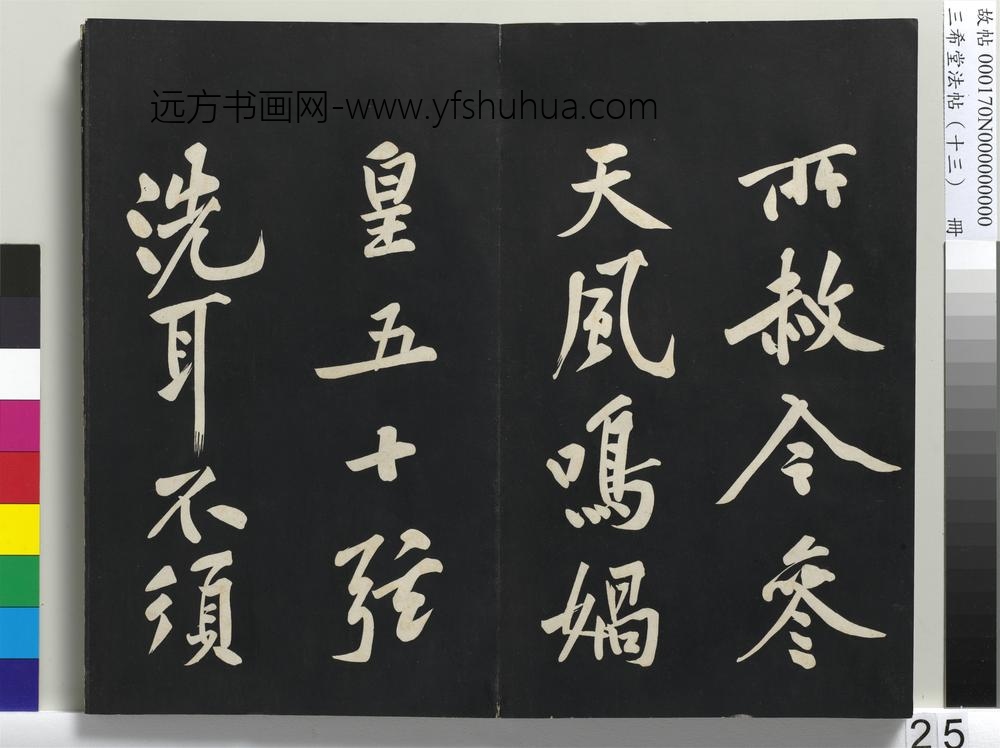 远方书画网-www.yfshuhua.com
所赦今參
天風鳴媧
皇五十弦
洗耳不須
故帖 000170N000000000
三希堂法帖(十三) 冊
25